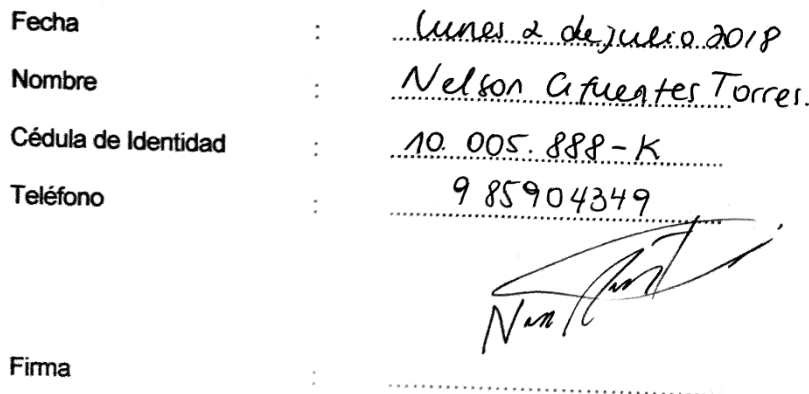 Fecha : lunes 2 de julio 2018
Nombre : Nelson Cifuentes Torres.
Cédula de Identidad : 10.005.888-K
Teléfono : 985904349
Firma :